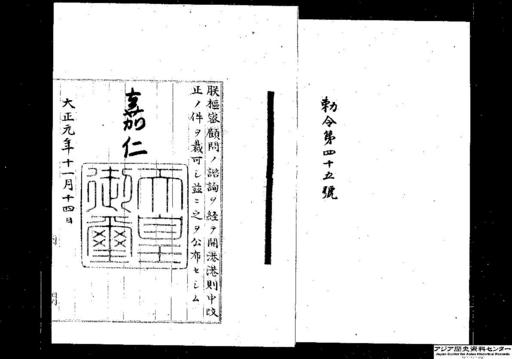 勅令第四十五號
朕樞密顧問ノ諮詢ヲ經テ開港港則中改
正ノ件ヲ裁可シ茲ニ之ヲ公布セシム
嘉仁
天皇
御璽
大正元年十一月十四日
アジア歴史資料センター
Japan Center for Asian Historical Records